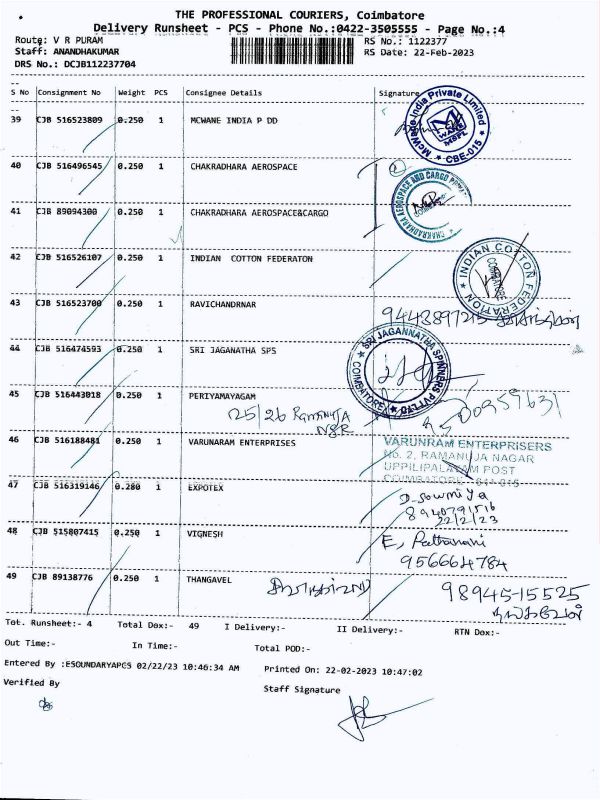 THE PROFESSIONAL COURIERS, Coimbatore
Delivery Runsheet - PCS - Phone No.:0422-3505555 - Page No.:4
Route: V R PURAM RS No.: 1122377
Staff: ANANDHAKUMAR RS Date: 22-Feb-2023
DRS No.: DCJB112237704
S No Consignment No Weight PCS Consignee Details Signature
39 CJB 516523809 0.250 1 MCWANE INDIA P DD
McWane India Private Limited
CBE-015
40 CJB 516496545 0.250 1 CHAKRADHARA AEROSPACE
CHAKRADHARA AEROSPACE AND CARGO
41 CJB 89094300 0.250 1 CHAKRADHARA AEROSPACE&CARGO
42 CJB 516526107 0.250 1 INDIAN COTTON FEDERATON
INDIAN COTTON FEDERATION
COIMBATORE
43 CJB 516523700 0.250 1 RAVICHANDRNAR
9443897215
44 CJB 516474593 0.250 1 SRI JAGANATHA SPS
SRI JAGANNATHA SPINNERS PVT LTD
COIMBATORE
45 CJB 516443018 0.250 1 PERIYAMAYAGAM
25/26 Ramanuja
NGR
46 CJB 516188481 0.250 1 VARUNARAM ENTERPRISES
VARUNRAM ENTERPRISERS
No. 2, RAMANUJA NAGAR
UPPILIPALAYAM POST
COIMBATORE 641 015
47 CJB 516319146 0.280 1 EXPOTEX
D. Sowmiya
8940791516
22/2/23
48 CJB 515807415 0.250 1 VIGNESH
E,
9566664784
49 CJB 89138776 0.250 1 THANGAVEL
98945-15525
தங்கவேல்
Tot. Runsheet:- 4 Total Dox:- 49 I Delivery:- II Delivery:- RTN Dox:-
Out Time:- In Time:- Total POD:-
Entered By :ESOUNDARYAPCS 02/22/23 10:46:34 AM Printed On: 22-02-2023 10:47:02
Verified By Staff Signature